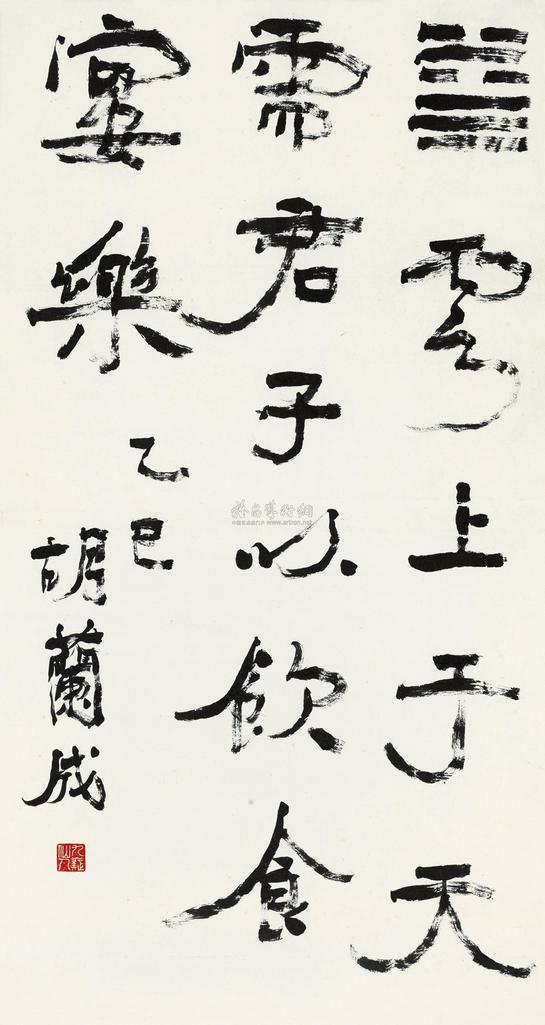 ䷄雲上于天
需君子以飲食
宴樂
乙巳
胡蘭成
雅昌藝術網
www.artron.net